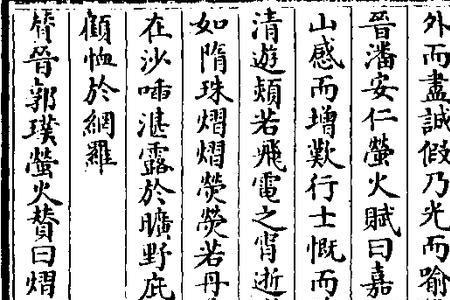 外而盡誠假乃光而喻
晉潘安仁螢火賦曰嘉
山感而增歎行士慨而
清遊熲若飛電之宵逝
如隋珠熠熠熒熒若丹
在沙湛露於曠野庇
顧恤於網羅
晉郭璞螢火賛曰熠